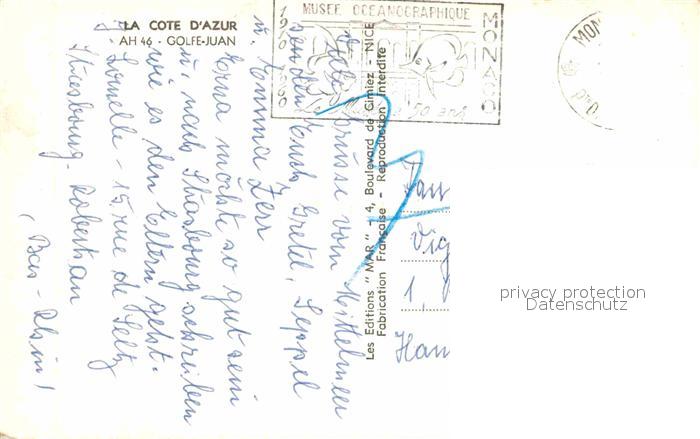 LA COTE D'AZUR
AH 46 - GOLFE-JUAN
MUSEE OCEANOGRAPHIQUE
1910 1960
MONACO
50 ans
MON
Liebe Grüsse vom Mittelmeer
senden Euch Gretel, Seppel
u. Emma Zerr
Erna möchte so gut sein
u. nach Strasbourg schreiben
wie es den Eltern geht.
15, rue de Seltz
Strasbourg - Robertsau
(Bas-Rhin)
Les Editions "MAR" - 4, Boulevard de Cimiez - NICE
Fabrication Française - Reproduction Interdite
Vig
1,
Han
privacy protection
Datenschutz